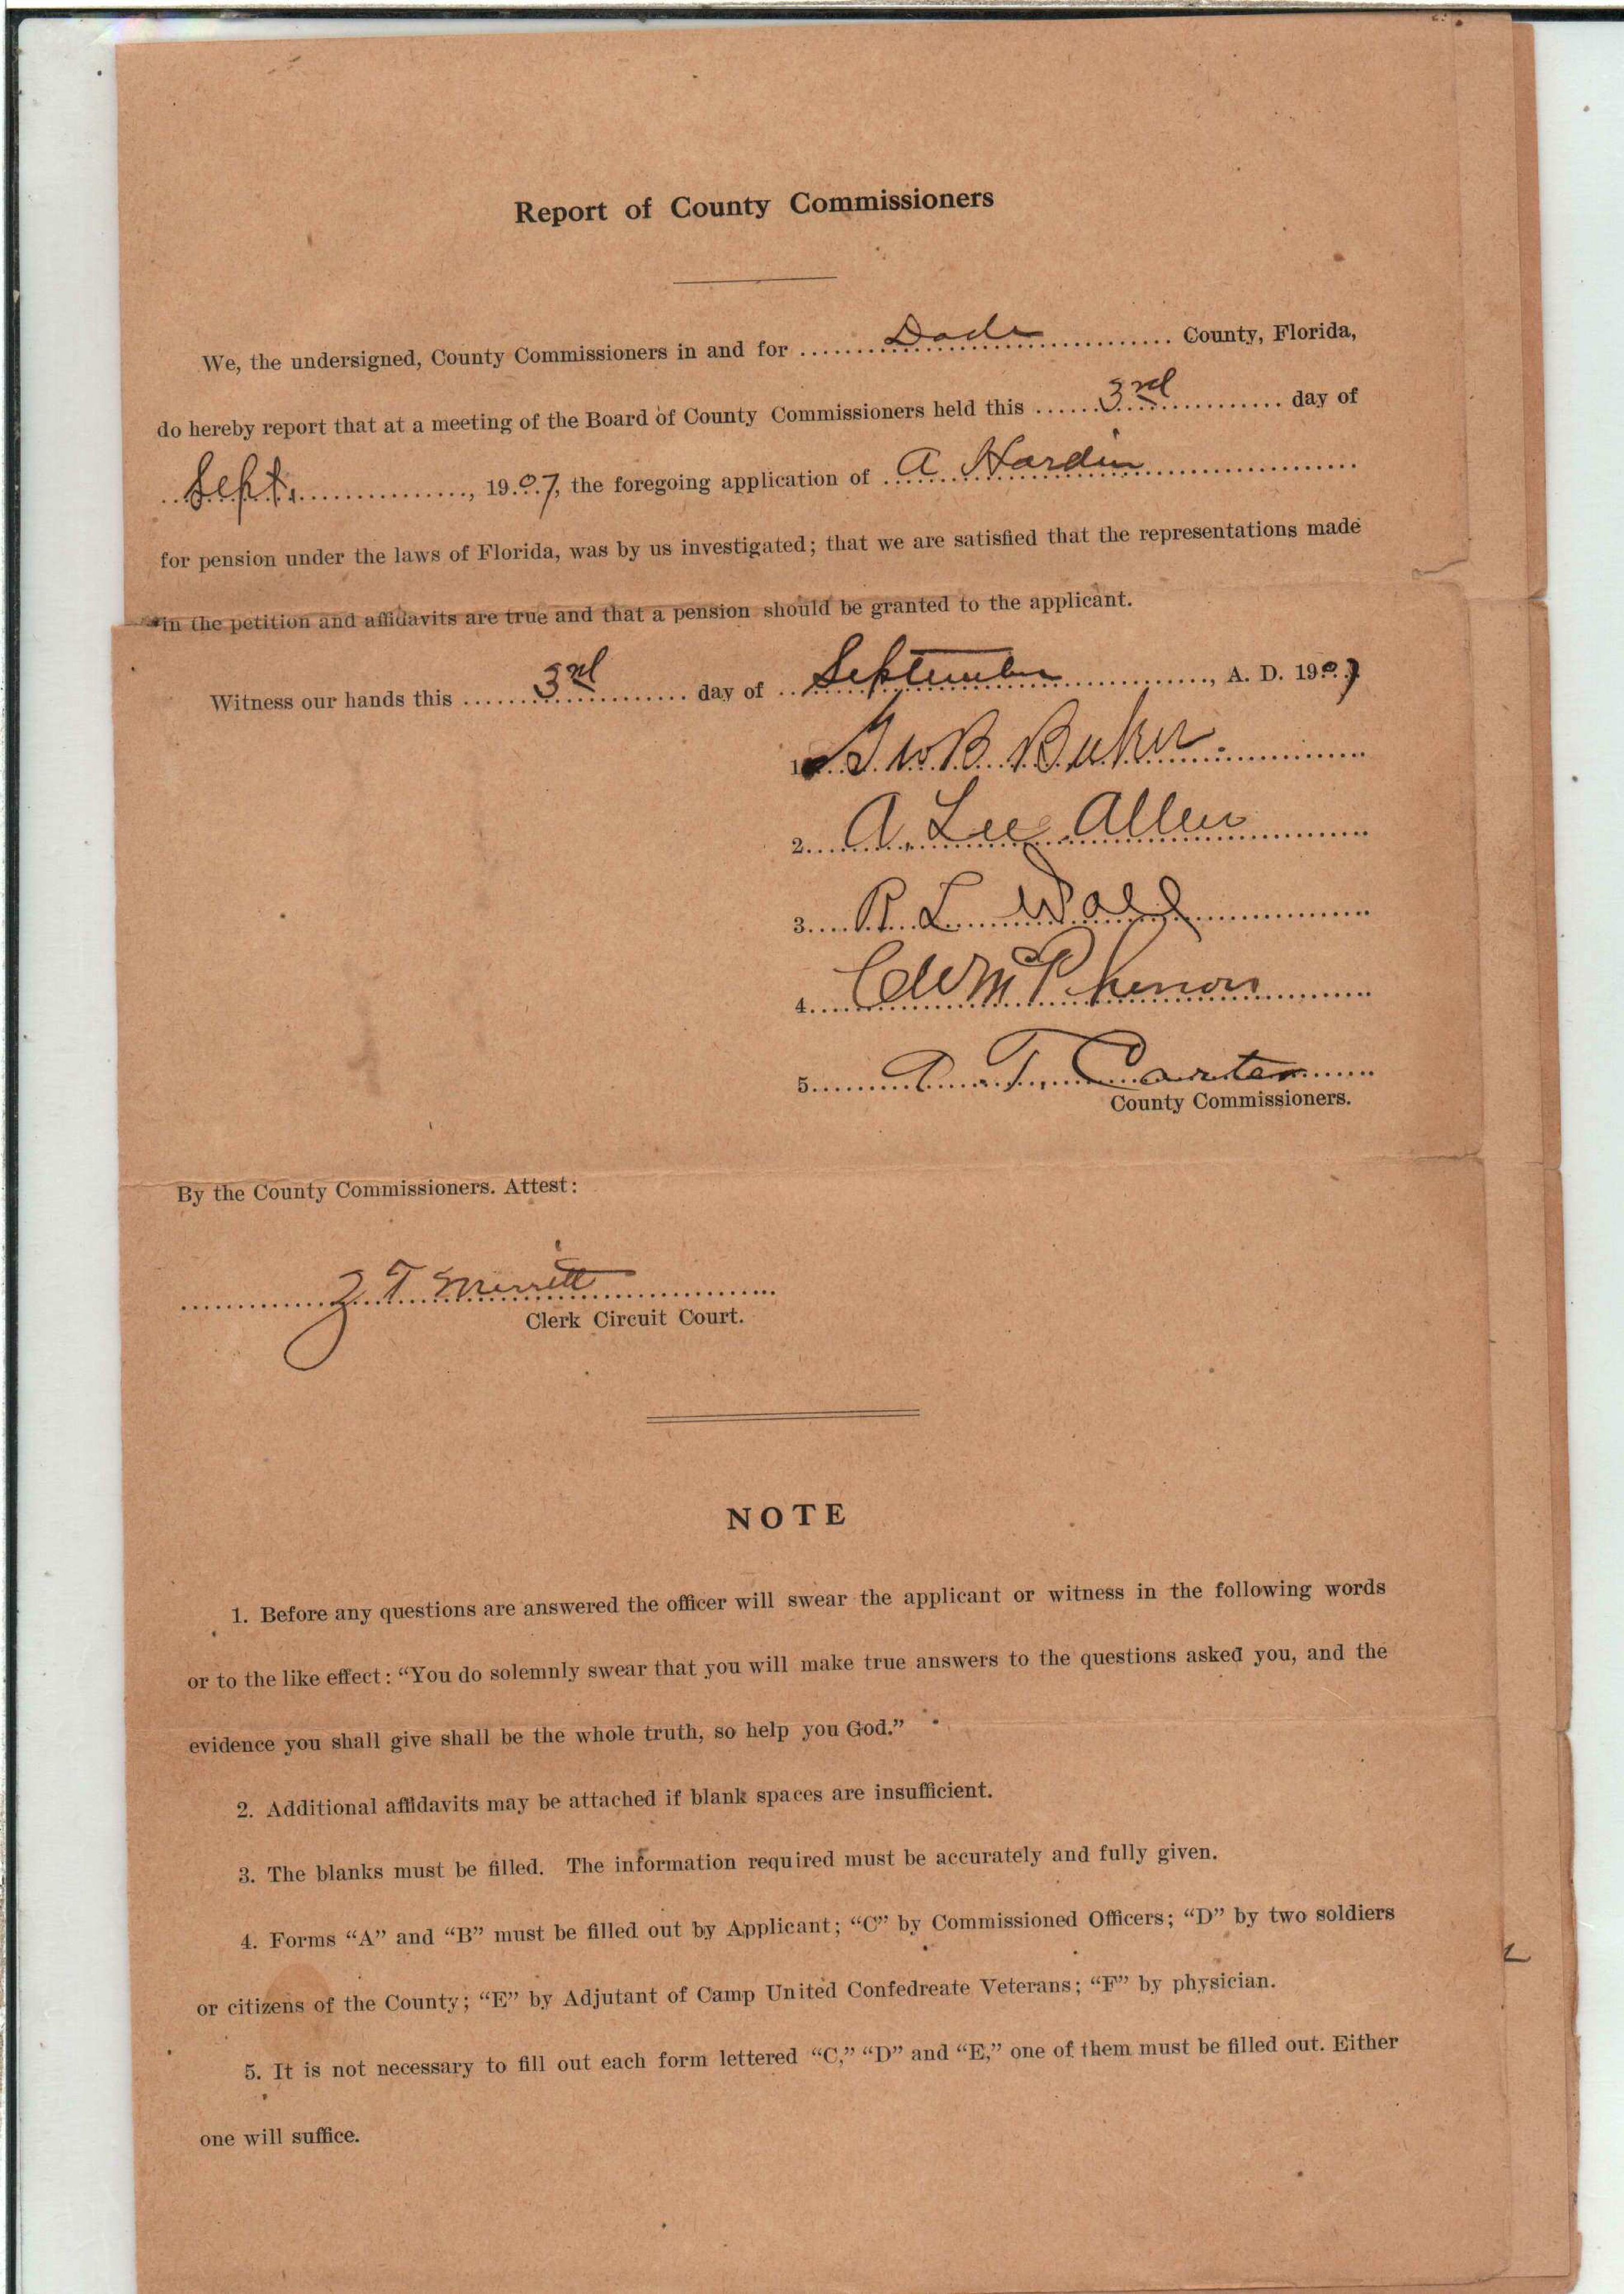 Report of County Commissioners
We, the undersigned, County Commissioners in and for Dade County, Florida,
do hereby report that at a meeting of the Board of County Commissioners held this 3rd day of
Sept., 1907, the foregoing application of A Hardin
for pension under the laws of Florida, was by us investigated; that we are satisfied that the representations made
in the petition and affidavits are true and that a pension should be granted to the applicant.
Witness our hands this 3rd day of September, A. D. 1907
1. W. B.
2. A. Lee Allen
3. R. L.
4.
5. A. T. Carter
County Commissioners.
By the County Commissioners. Attest:
Z. T. Merritt
Clerk Circuit Court.
NOTE
1. Before any questions are answered the officer will swear the applicant or witness in the following words
or to the like effect: “You do solemnly swear that you will make true answers to the questions asked you, and the
evidence you shall give shall be the whole truth, so help you God.”
2. Additional affidavits may be attached if blank spaces are insufficient.
3. The blanks must be filled. The information required must be accurately and fully given.
4. Forms “A” and “B” must be filled out by Applicant; “C” by Commissioned Officers; “D” by two soldiers
or citizens of the County; “E” by Adjutant of Camp United Confedreate Veterans; “F” by physician.
5. It is not necessary to fill out each form lettered “C,” “D” and “E,” one of them must be filled out. Either
one will suffice.